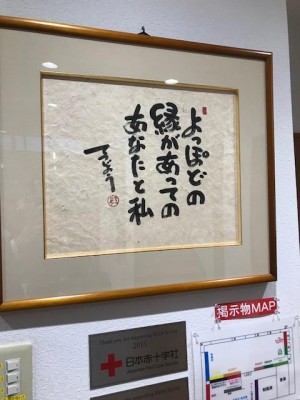 よっぽどの
縁があっての
あなたと私
掲示物MAP
2015
日本赤十字社
Japanese Red Cross Society